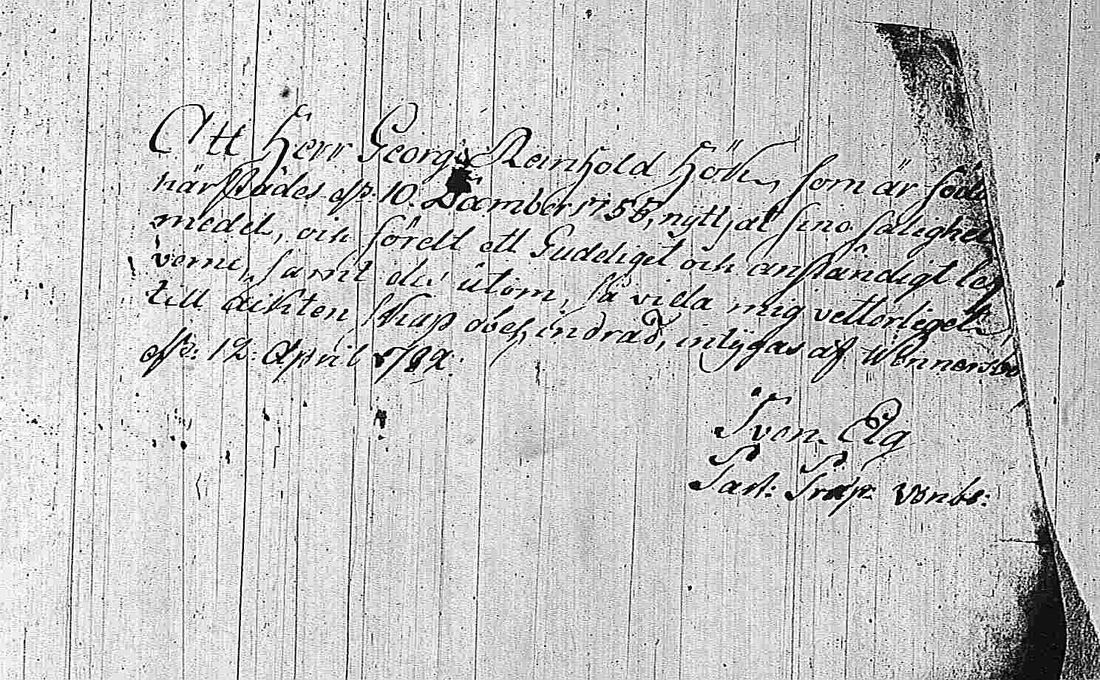 Att Herr Georg Reinhold Höök, som är född
härstädes d. 10. December 1758, nyttjat sina salighets
medel, och fördt ett Gudeligt och anständigt lef
verne, samt de utom, så vida mig vetterligt,
till ächtenskap obehindrad, intygas af Wennersbo
d. 12. April
Sven Elg
Past: Präp: Venbs: